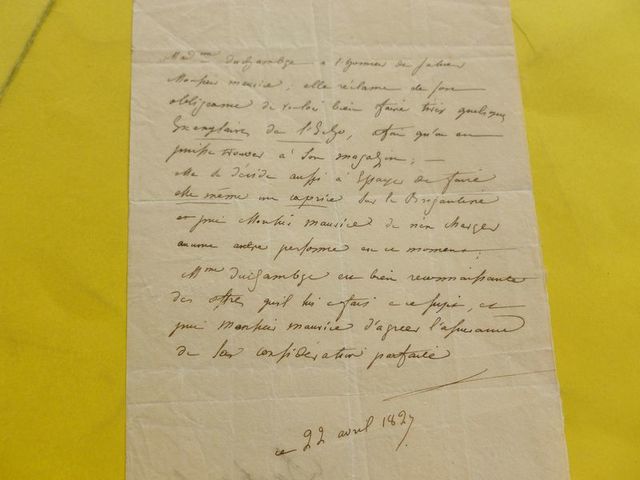 Mad.me Duchambge a l'honneur de saluer
Monsieur maurice; elle réclame de son
obligeance de vouloir bien faire tirer quelques
Exemplaires de l'Echo, afin qu'on en
puisse trouver à son magazin; —
elle se décide aussi à Essayer de faire
elle même un caprice sur la Brigantine
et prie Monsieur maurice de n'en charger
aucune autre personne en ce moment;
M.me Duchambge est bien reconnaissante
des offres qu'il lui a fait a ce sujet, et
prie Monsieur maurice d'agréer l'assurance
de sa considération parfaite
ce 22 avril 1827